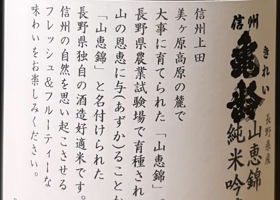 信州
亀齢
きれい
長野県産
山恵錦
純米吟
信州上田
美ヶ原高原の麓で
大事に育てられた「山恵錦」。
長野県農業試験場で育種され
山の恩恵に与(あずか)ることか
「山恵錦」と名付けられた
長野県独自の酒造好適米です。
信州の自然を思い起こさせる
フレッシュ&フルーティーな
味わいをお楽しみください。